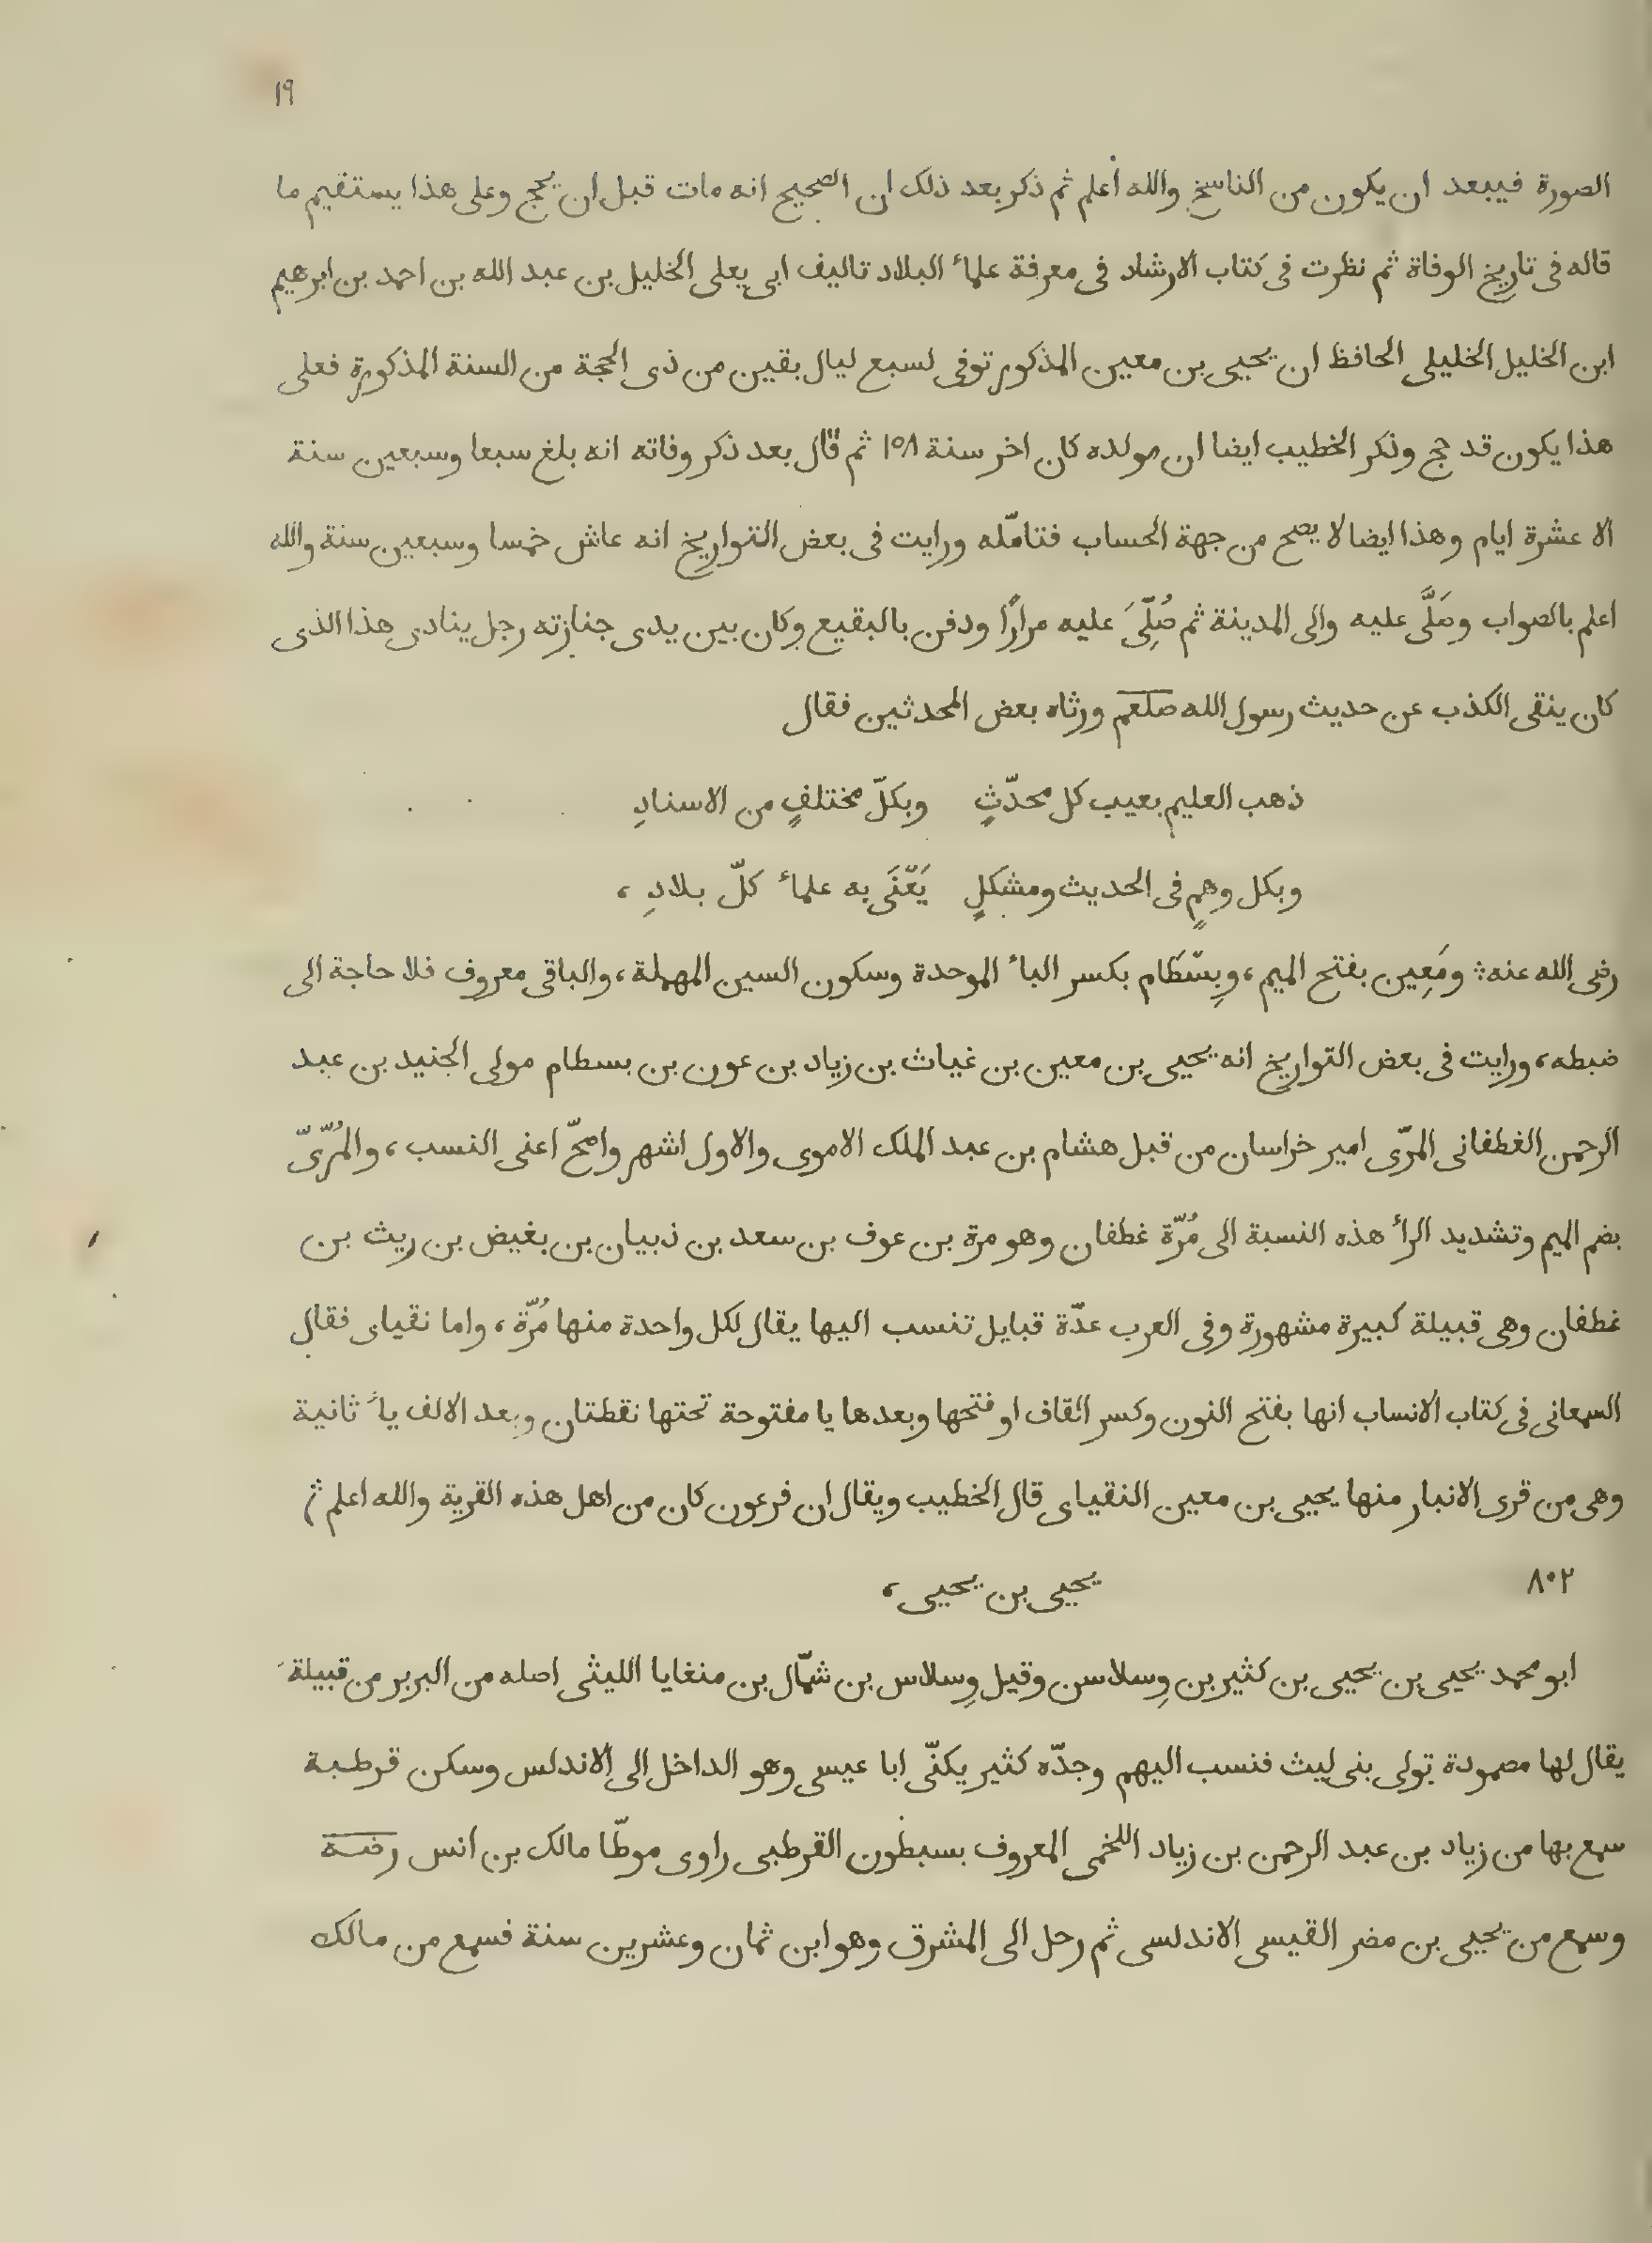 ١٩
الصورة فيبعد ان يكون من الناسخ والله أعلم ثم ذكر بعد ذلك ان الصحيح انه مات قبل ان يحج وعلى هذا يستقيم ما
قاله فى تاريخ الوفاة ثم نظرت فى كتاب الارشاد فى معرفة علمآء البلاد تاليف ابى يعلى الخليل بن عبد الله بن احمد بن ابرهيم
ابن الخليل الخليلى الحافظ ان يحيى بن معين المذكور توفى لسبع ليال بقين من ذى الحجة من السنة المذكورة فعلى
هذا يكون قد حج وذكر الخطيب ايضا ان مولده كان اخر سنة ١٥٨ ثم قال بعد ذكر وفاته انه بلغ سبعا وسبعين سنة
الا عشرة ايام وهذا ايضا لا يصح من جهة الحساب فتامّله ورايت فى بعض التواريخ انه عاش خمسا وسبعين سنة والله
اعلم بالصواب وصَلَّى عليه والى المدينة ثم صُلِّىَ عليه مرارًا ودفن بالبقيع وكان بين يدى جنازته رجل ينادى هذا الذى
كان ينقى الكذب عن حديث رسول الله صلعم ورثاه بعض المحدثين فقال
ذهب العليم بعيب كل محدّثٍ وبكلّ مختلفٍ من الاسنادِ
وبكل وهمٍ فى الحديث ومشكلٍ يَعْنَى به علمآء كلّ بلادِ ،
رضى الله عنه ؛ ومَعِين بفتح الميم ، وبِسْطَام بكسر البآء الموحدة وسكون السين المهملة ، والباقى معروف فلا حاجة الى
ضبطه ، ورايت فى بعض التواريخ انه يحيى بن معين بن غياث بن زياد بن عون بن بسطام مولى الجنيد بن عبد
الرحمن الغطفانى المرّى امير خراسان من قبل هشام بن عبد الملك الاموى والاول اشهر واصحّ اعنى النسب ، والمُرّىّ
بضم الميم وتشديد الرآ هذه النسبة الى مُرّة غطفان وهو مرة بن عوف بن سعد بن ذبيان بن بغيض بن ريث بن
غطفان وهى قبيلة كبيرة مشهورة وفى العرب عدّة قبايل تنسب اليها يقال لكل واحدة منها مُرّة ، واما نقياى فقال
السمعانى فى كتاب الانساب انها بفتح النون وكسر القاف او فتحها وبعدها يا مفتوحة تحتها نقطتان وبعد الالف يآء ثانية
وهى من قرى الانبار منها يحيى بن معين النقياى قال الخطيب ويقال ان فرعون كان من اهل هذه القرية والله اعلم ؛
٨٠٢ يحيى بن يحيى ،
ابو محمد يحيى بن يحيى بن كثير بن وِسلاسن وقيل وِسلاس بن شمّال بن منغايا الليثى اصله من البربر من قبيلة
يقال لها مصمودة تولى بنى ليث فنسب اليهم وجدّه كثير يكنّى ابا عيسى وهو الداخل الى الاندلس وسكن قرطبة
سمع بها من زياد بن عبد الرحمن بن زياد اللخمى المعروف بسبطون القرطبى راوى موطّا مالك بن انس رضه
وسمع من يحيى بن مضر القيسى الاندلسى ثم رحل الى المشرق وهو ابن ثمان وعشرين سنة فسمع من مالك